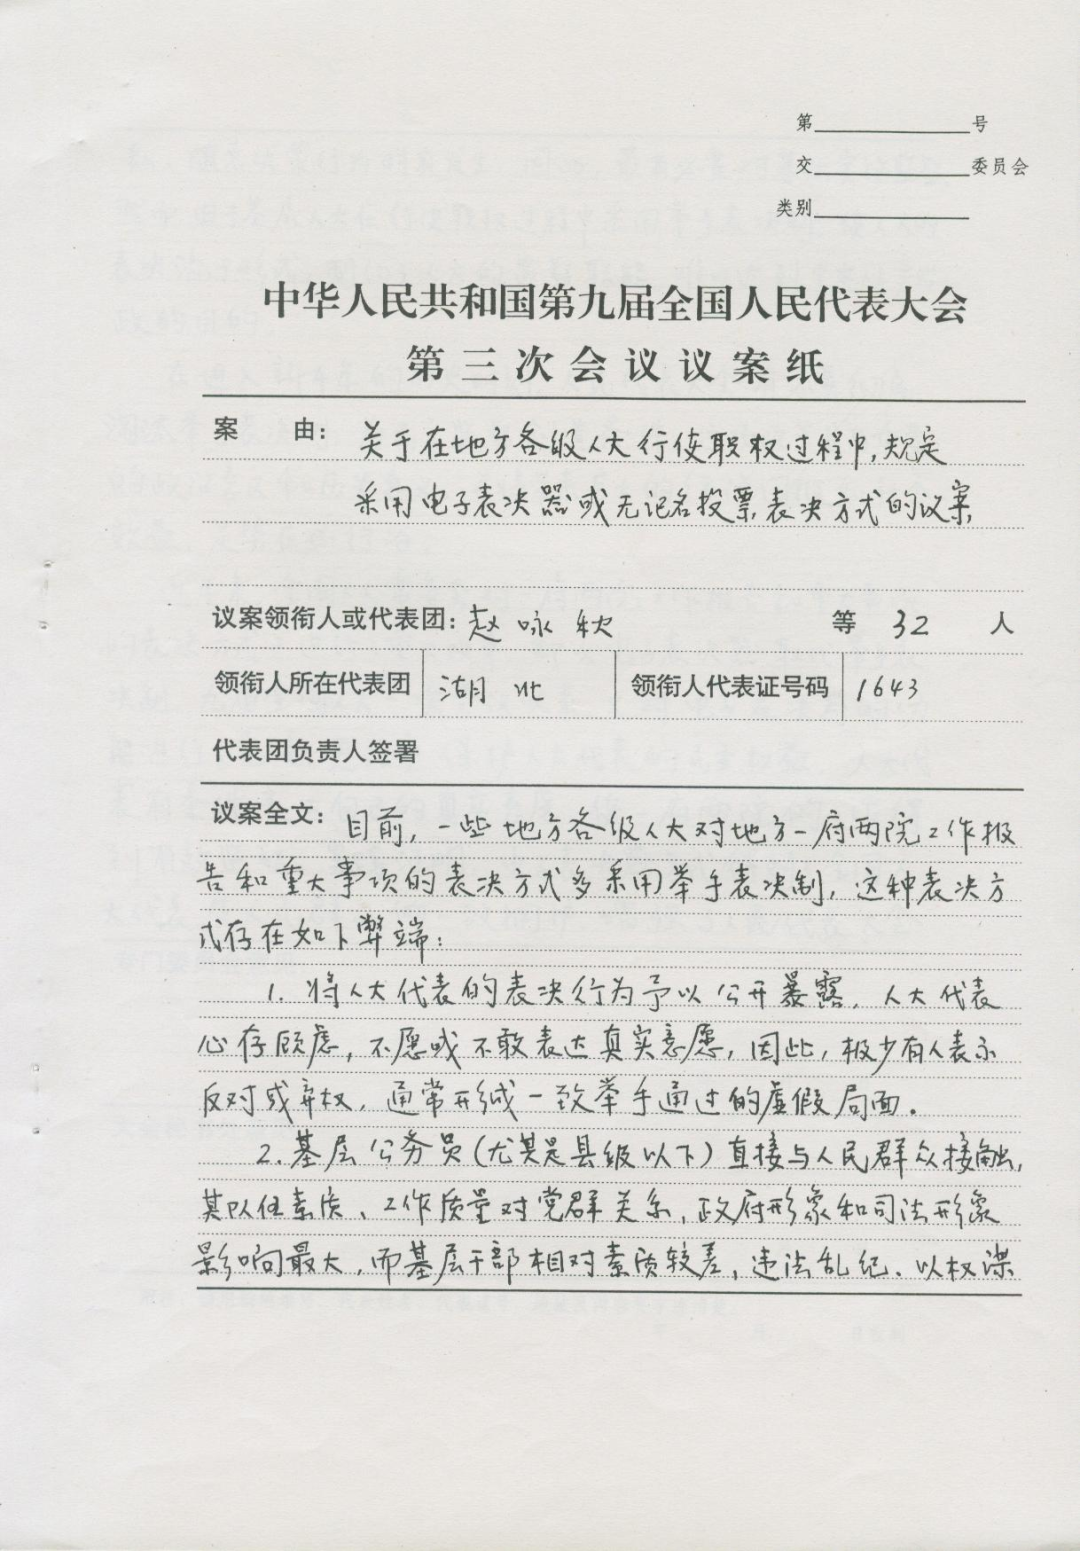 第 号
交 委员会
类别
中华人民共和国第九届全国人民代表大会
第三次会议议案纸
案 由: 关于在地方各级人大行使职权过程中,规定
采用电子表决器或无记名投票表决方式的议案
议案领衔人或代表团: 赵咏秋 等 32 人
领衔人所在代表团 湖北 领衔人代表证号码 1643
代表团负责人签署
议案全文: 目前,一些地方各级人大对地方一府两院工作报
告和重大事项的表决方式多采用举手表决制,这种表决方
式存在如下弊端:
1. 将人大代表的表决行为予以公开暴露,人大代表
心存顾虑,不愿或不敢表达真实意愿,因此,极少有人表示
反对或弃权,通常形成一致举手通过的虚假局面。
2. 基层公务员(尤其是县级以下)直接与人民群众接触,
其队伍素质、工作质量对党群关系,政府形象和司法形象
影响最大,而基层干部相对素质较差,违法乱纪、以权谋